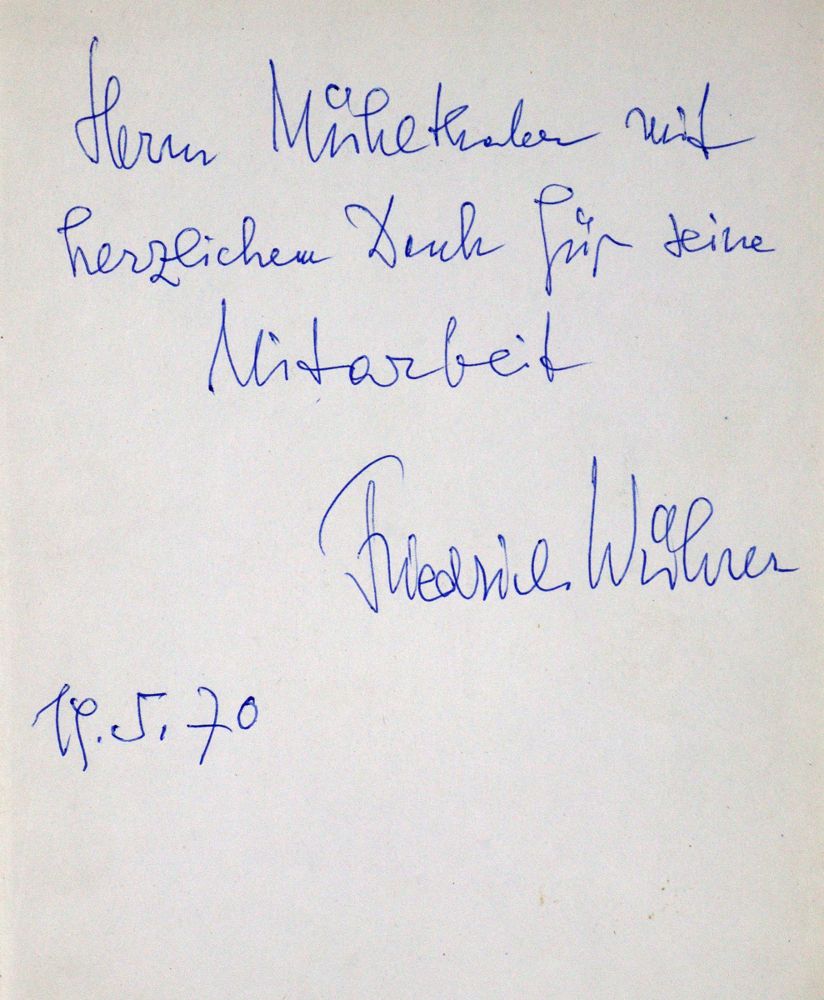 Herrn Mühlthaler mit
herzlichem Dank für seine
Mitarbeit
Friedrich Wührer
19.5.70